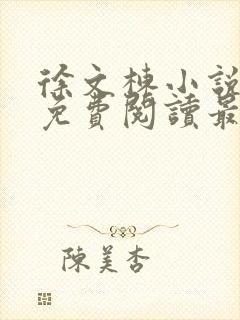 徐文棟小說
免費閱讀最
陳美杏